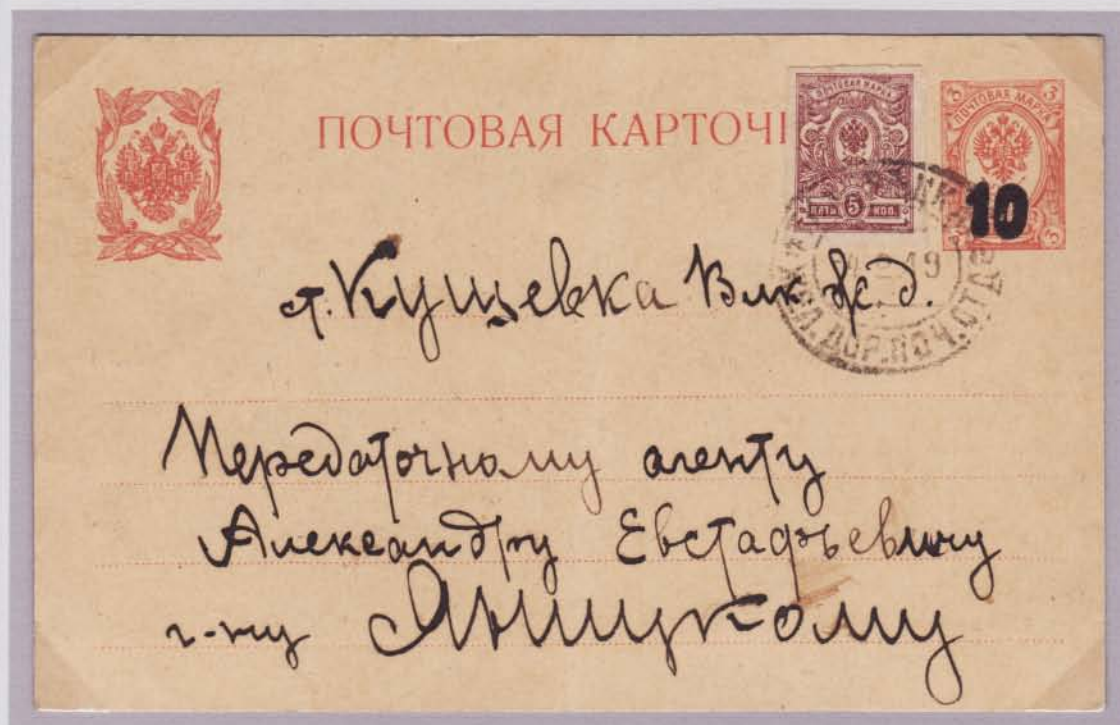 ПОЧТОВАЯ КАРТОЧ
ПОЧТОВАЯ МАРКА
5
ПЯТЬ КОП.
3 3
ПОЧТОВАЯ МАРКА
10
3
19
ЖЕЛ.ДОР.ПОЧ.ОТД.
ст. Кущевка Влк ж.д.
Передаточному агенту
Александру Евстафьевичу
г-ну Яницкому